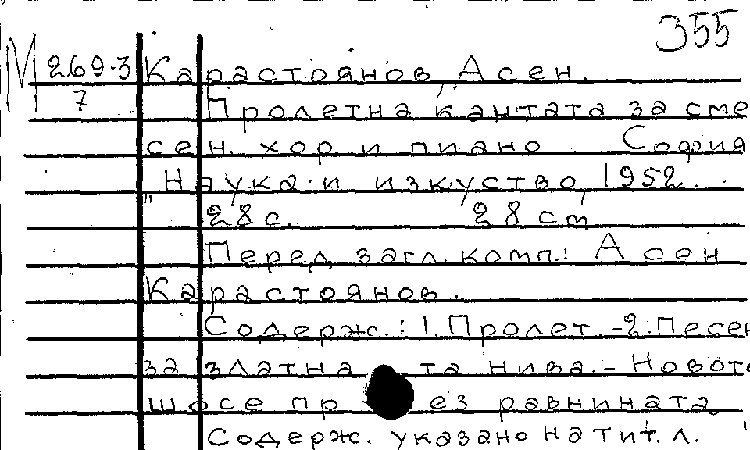 355
М 269-3
7
Карастоянов, Асен.
Пролетна кантата за сме
сен. хор и пиано София
"Наука и изкуство, 1952.
28 с. 28 cm
Перед загл. комп.: Асен
Карастоянов.
Содерж.: 1. Пролет. -2. Песен
за златната нива. - Новото
шосе през равнината.
Содерж. указано на тит. л.